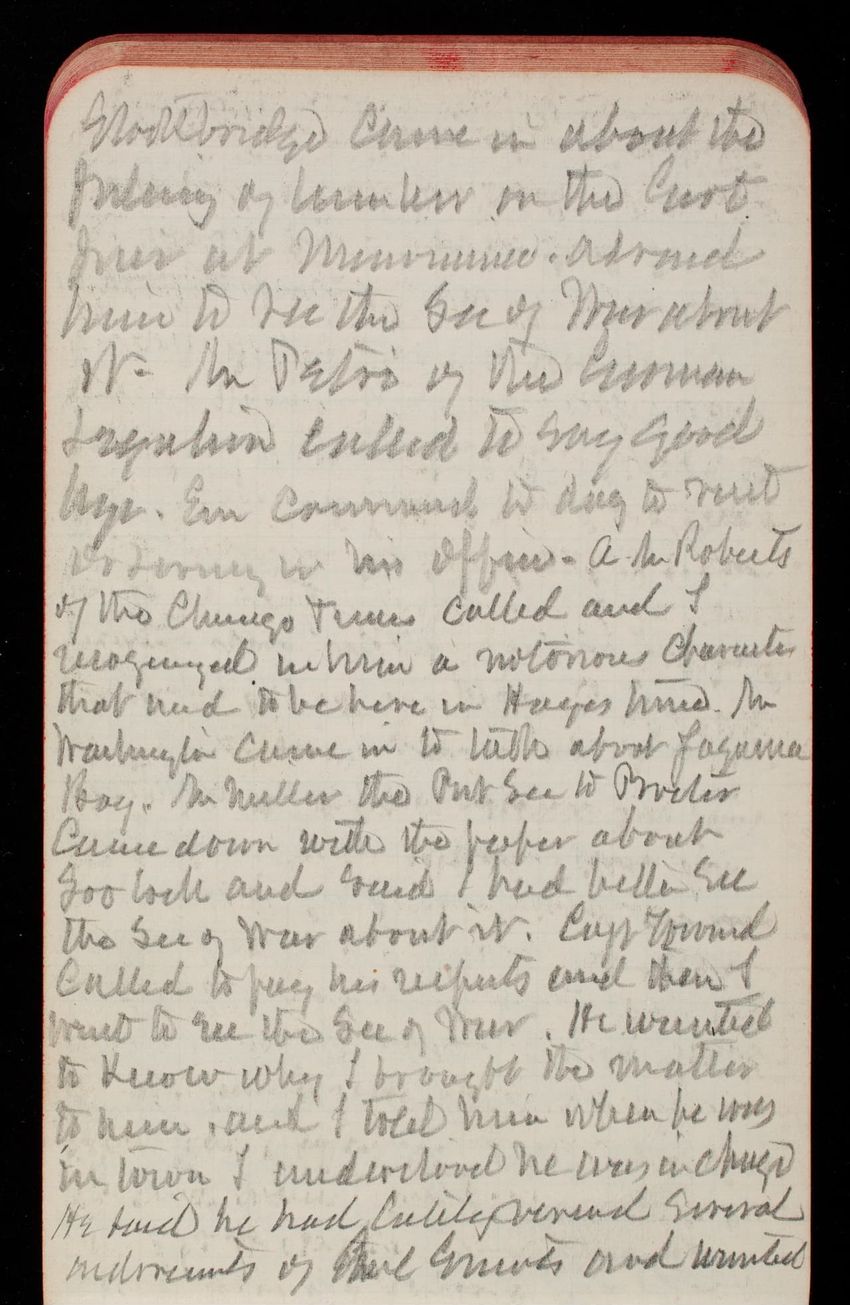 Stockbridge came in about the
of lumber on the Govt
at Menominee. advised
him to see the Sec of War about
it. Mr Petri of the German
Legation called to say good
bye. Gen commenced to day to
in his office. A Mr Roberts
of the Chicago Times called and I
recognized in him a notorious character
that used to be here in Hayes time. Mr
Washington came in to talk about Yaquina
Bay. Mr Miller the Prt Sec to Proctor
Came down with the paper about
Soo lock and said I had better see
the Sec of War about it. Capt
Called to pay his respects and then I
went to see the Sec of War. He wanted
to know why I brought the matter
to him, and I told him when he was
in town I understood he was in charge
He said he had several
of and wanted